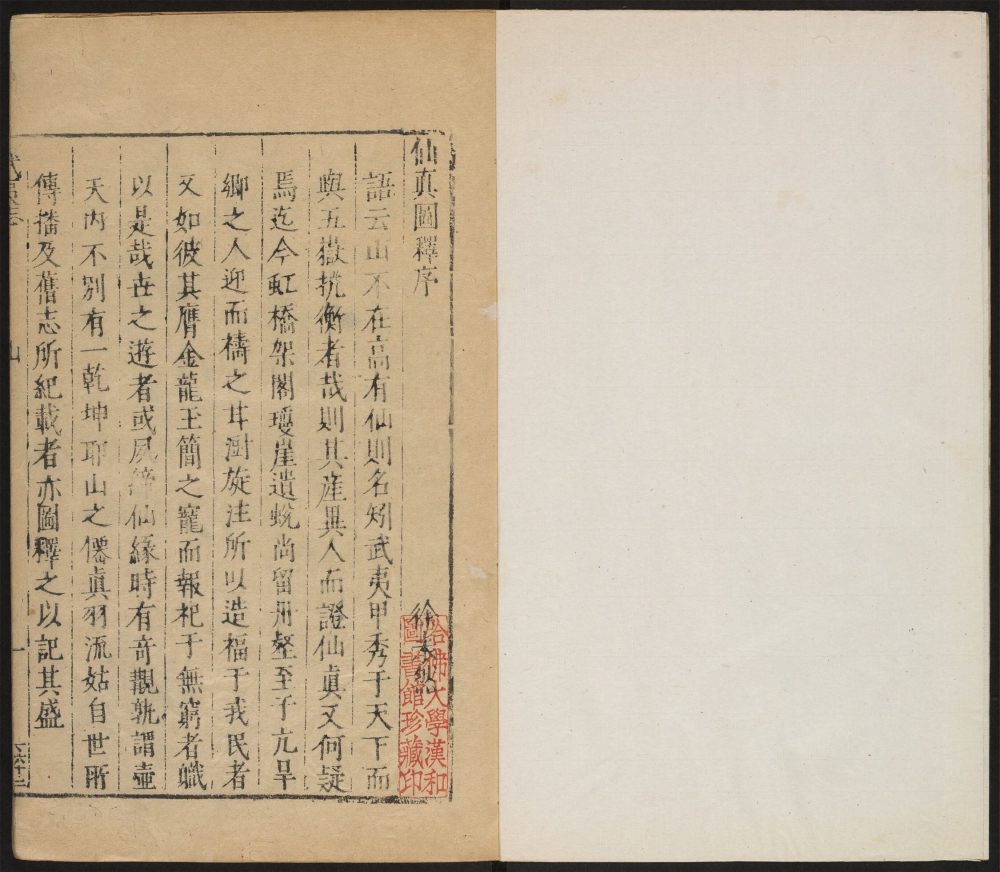 仙真圖釋序
徐
哈佛大學漢和
圖書館珍藏印
語云山不在高有仙則名矧武夷甲秀于天下而
與五嶽抗衡者哉則其産異人而證仙眞又何疑
焉迄今虹橋架閣瓊崖遺蛻尚留册壑至于亢旱
鄉之人迎而禱之甘澍旋注所以造福于我民者
又如彼其膺金龍玉簡之寵而報祀于無窮者職
以是哉世之遊者或夙締仙緣時有奇觀孰謂壺
天内不別有一乾坤耶山之僊眞羽流姑自世所
傳播及舊志所紀載者亦圖釋之以記其盛
武夷志
山
一